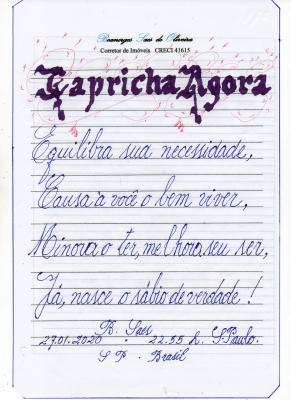 Boanerges Saes de Oliveira
Corretor de Imóveis CRECI 41615
Capricha Agora
Equilibra sua necessidade,
Causa à você o bem viver,
Minora o ter, melhora seu ser,
Já, nasce o sábio de verdade!
B. Saes
27.01.2020 - 22.55 h. S.Paulo.
S P - Brasil